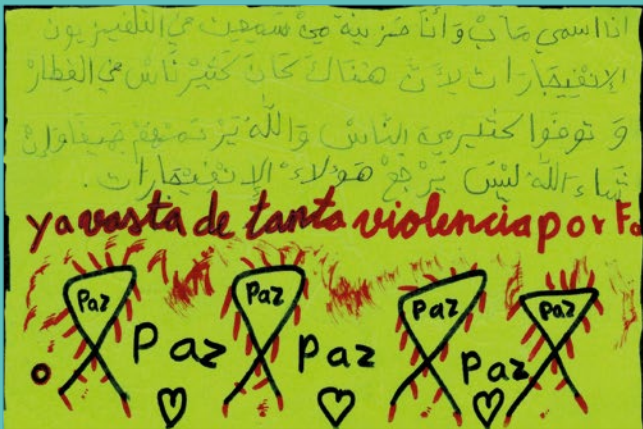 انا اسمي رحاب وَأَنَا حَزِينَة مِنْ سَمِعِت في التلفيزيون
الإنْفِيجَارَات لِأَنَّ هُنَاكَ كَانَ كَثِيْر نَّاسْ في القِطارْ
وَ تُوفَوا كثير مِن النَّاسْ وَاللَّهُ يَرْحَمْهُمْ جَمِيعًا وَإنْ
شَاءَ اللَّهُ لَيْسَ يَرْجَعْ هَؤلاءْ الإنْفِيجَارات.
ya vasta de tanta violencia por Fa
Paz Paz Paz Paz
Paz Paz Paz